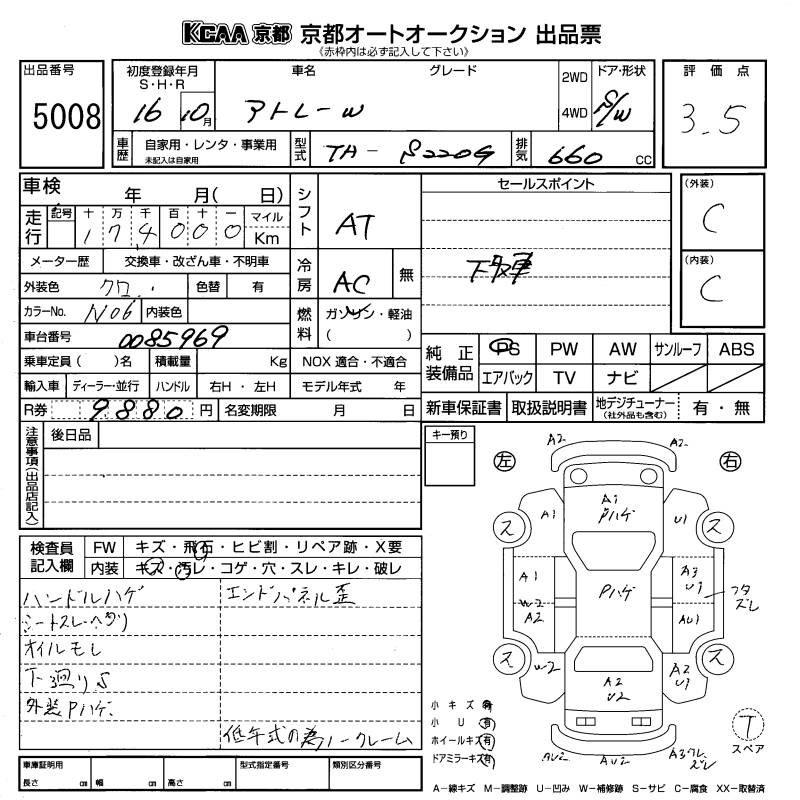 KCAA 京都 京都オートオークション 出品票
《赤枠内は必ず記入して下さい》
出品番号 5008
初度登録年月 S・H・R 16 10月
車名 アトレーW グレード
2WD 4WD ドア・形状 5/W
評価点 3.5
車歴 自家用・レンタ・事業用 未記入は自家用
型式 TA-S220G 排気 660 CC
車検 年 月( 日)
走行 記号 十 万 千 百 十 一 マイル Km
174000
シフト AT
メーター歴 交換車・改ざん車・不明車
冷房 AC 無
外装色 クロ 色替 有
カラーNo. N06 内装色
燃料 ガソリン・軽油 ( )
車台番号 0085969
乗車定員( )名 積載量 Kg NOX 適合・不適合
輸入車 ディーラー・並行 ハンドル 右H・左H モデル年式 年
R券 9880円 名変期限 月 日
セールスポイント
下取車
(外装) C
(内装) C
純正装備品 PS PW AW サンルーフ ABS
エアバック TV ナビ
新車保証書 取扱説明書 地デジチューナー (社外品も含む) 有・無
注意事項(出品店記入) 後日品
キー預り
検査員記入欄 FW キズ・飛石・ヒビ割・リペア跡・X要
内装 キズ・汚レ・コゲ・穴・スレ・キレ・破レ
ハンドルハゲ エンドパネル歪
シートスレ・ヘタリ
オイルモレ
下廻りS
外装Pハゲ
低年式の為ノークレーム
左 右
A2 A2
A1 Pハゲ
A1 U1
ス ス
A1 Pハゲ A3 U1
W2 A2 AU1 フタズレ
ス ス
W2 A2 U2 A2 U1
AU2 AU2 A3クレ ズレ
T スペア
小キズ 有
小U 有
ホイールキズ 有
ドアミラーキズ 有
車庫証明用 長さ cm 幅 cm 高さ cm 型式指定番号 類別区分番号
A−線キズ M−調整跡 U−凹み W−補修跡 S−サビ C−腐食 XX−取替済